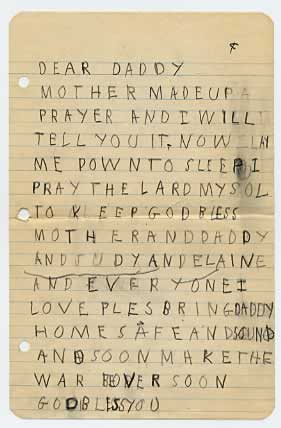 DEAR DADDY
MOTHER MADE UP A
PRAYER AND I WILL
TELL YOU IT. NOW I LAY
ME DOWN TO SLEEP I
PRAY THE LARD MY SOL
TO KEEP GOD BLESS
MOTHER AND DADDY
AND JUDY AND ELAINE
AND EVERYONE I
LOVE PLES BRING DADDY
HOME SAFE AND SOUND
AND SOON MAKE THE
WAR BE OVER SOON
GOD BLESS YOU